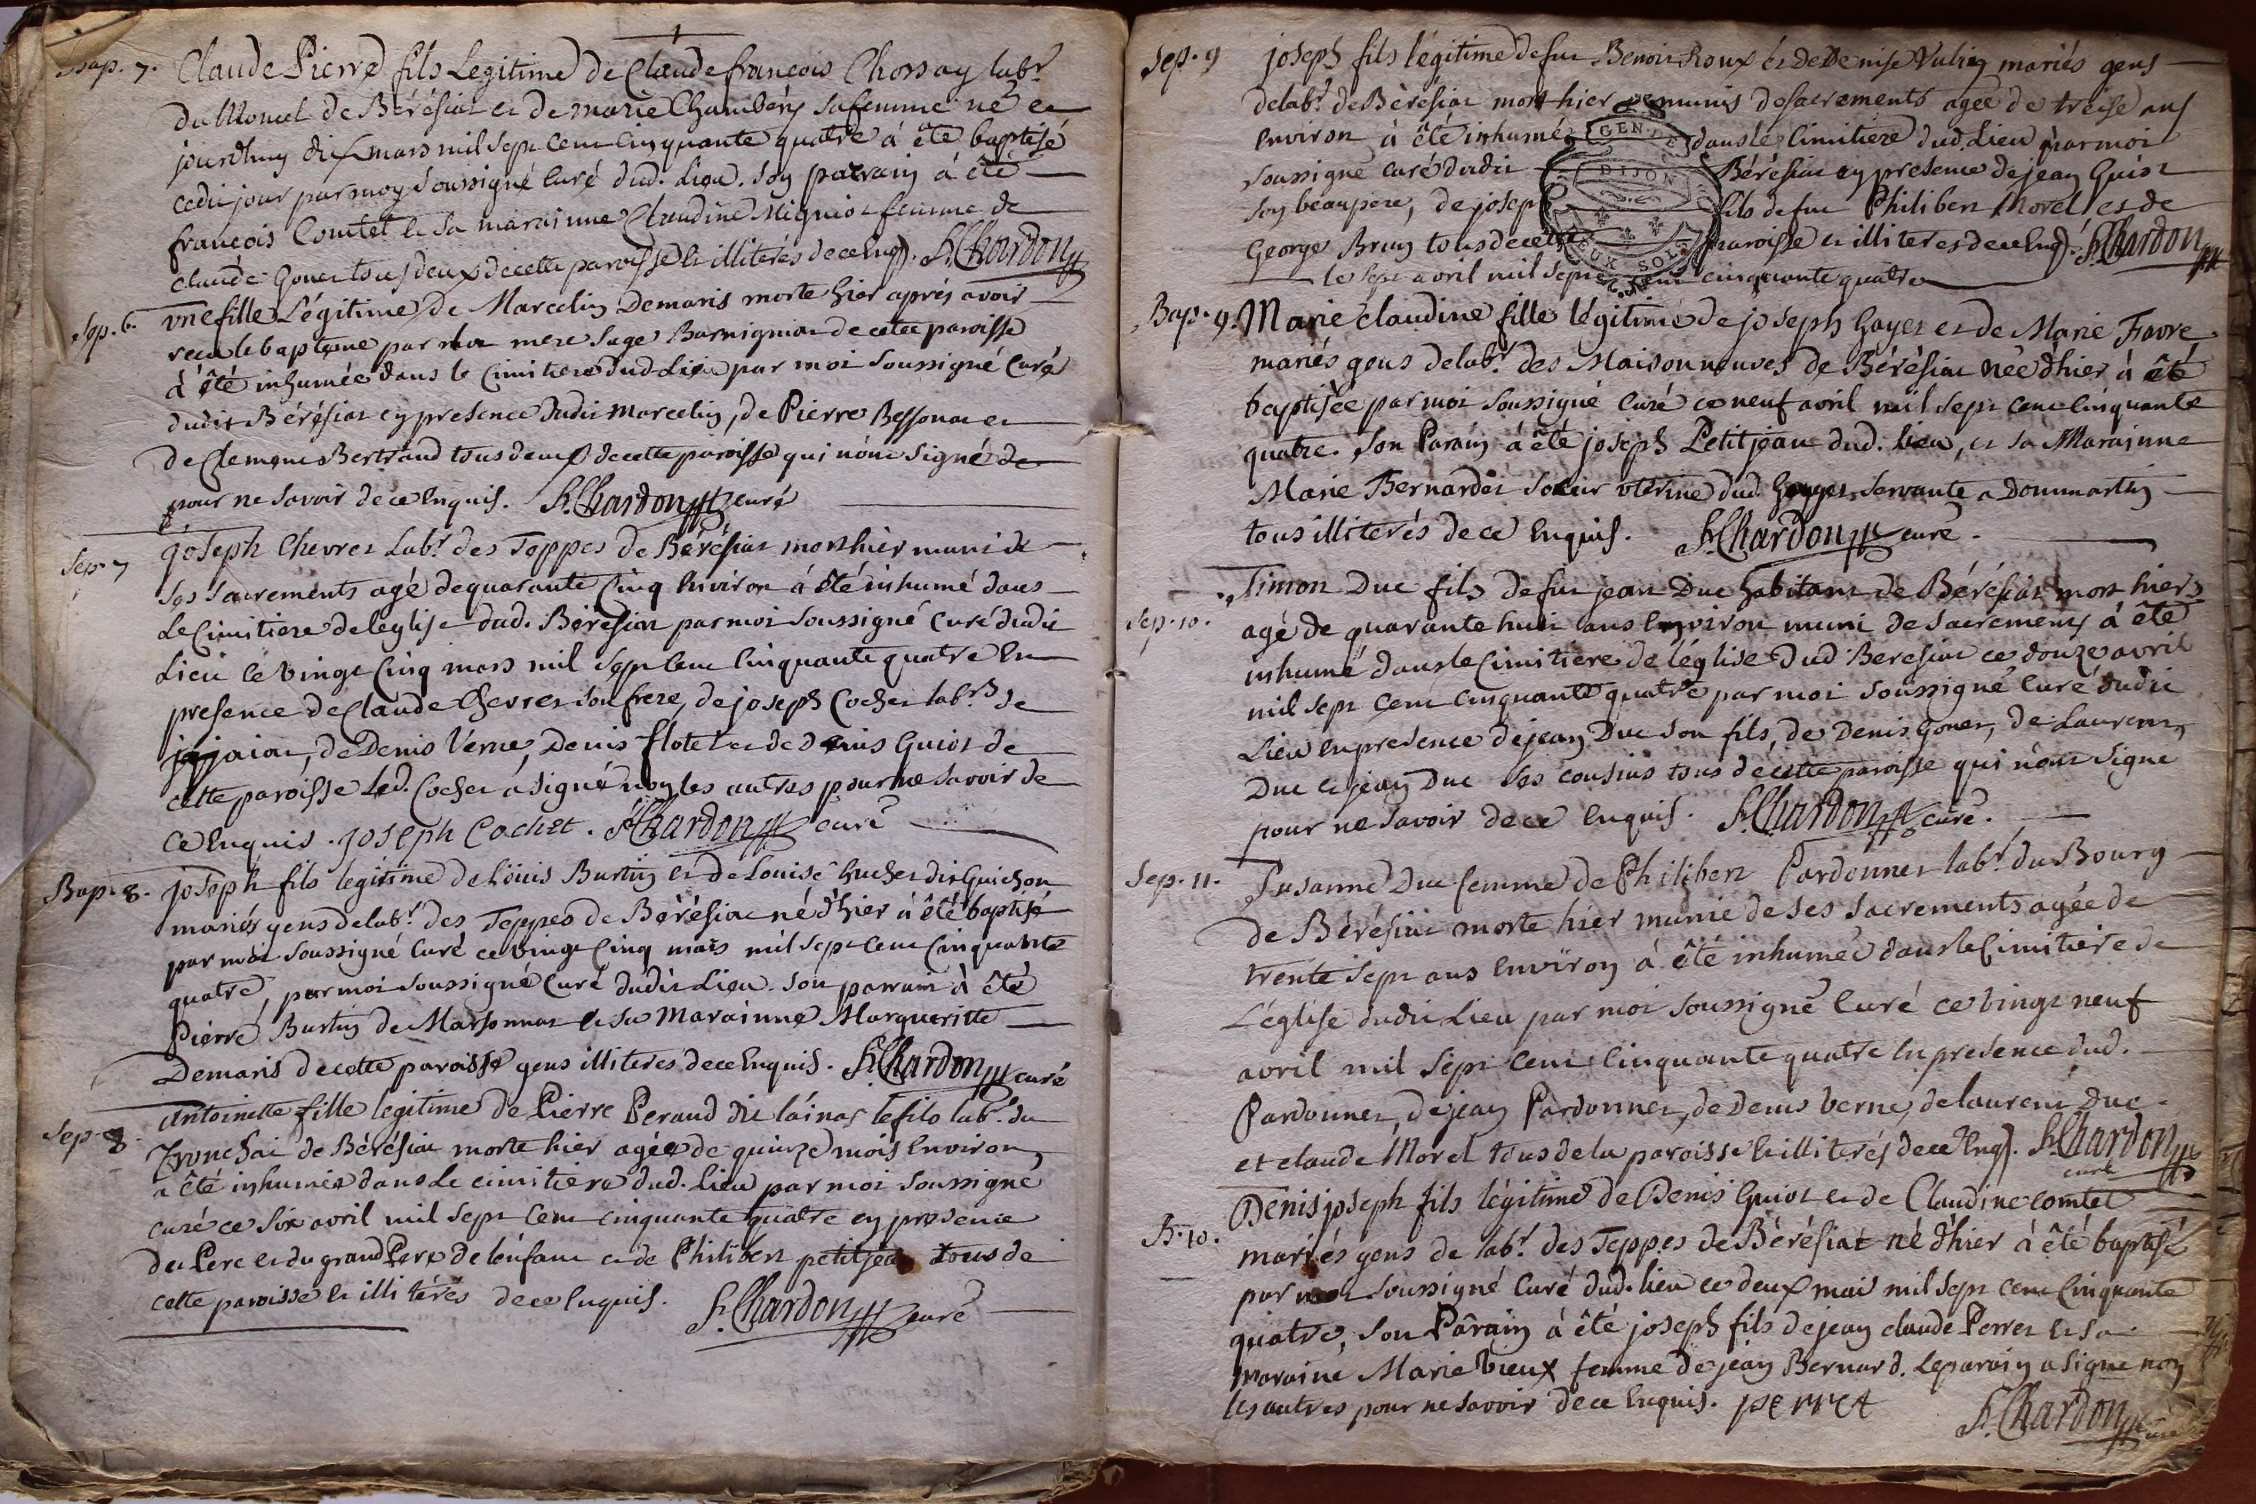 Bap. 7. Claude Pierre fils Legitime de Claude françois Chossay labr.
du Moncel de Bérésiat et de marie Chambéry sa femme né et
jourdhuy dix mars mil sept cent cinquante quatre à été baptisé
cedit jour par moy soussigné curé dud. Lieu. Son parain à été
françois Comtet et sa marainne Claudine Migniot femme de
claude Gonet tous deux de cette paroisse et illiterés de ce enq). f. Chardon
Sep. 6. une fille Légitime de Marcelin Demaris morte hier aprés avoir
recu le baptême par mere sage Barnigniat de cette paroisse
à été inhumée dans le Cimitiere dud. Lieu par moi soussigné Curé
dudit Bérésiat en presence dudit Marcelin, de Pierre Bessonat et
de Clement Bertrand tous deux de cette paroisse qui n'ont signé de
pour ne savoir de ce enquis. f. Chardon curé
Sep. 7 Joseph Chevret Labr. des Teppes de Bérésiat mort hier muni de
ses sacrements agé de quarante cinq environ à été inhumé dans
Le Cimitiere de leglise dud. Bérésiat par moi soussigné Curé dudit
Lieu ce vingt cinq mars mil sept cent cinquante quatre en
presence de Claude Chevret son frere, de joseph Cochet labr. de
jajaiat, de Denis Verne, Denis flotet et de denis Guiot de
cette paroisse Led. Cochet a signé non les autres pour ne savoir de
ce enquis. joseph Cochet. f. Chardon curé
Bap. 8. joseph fils legitime de Loüis Burtin et de Louise huchet dit Guichon
mariés gens de labr. des Teppes de Bérésiat né d'hier à été baptisé
par moi soussigné Curé ce vingt cinq mars mil sept cent cinquante
quatre, par moi soussigné Curé dudit Lieu. Son parrain à été
Piérre Burtin de Marsonnat et sa Marainne Margueritte
Demaris de cette paroisse gens illiteres de ce enquis. f. Chardon curé
Sep. 8 antoinette fille legitime de Pierre Peraud dit lainas le fils labr. du
Tronchai de Bérésiat morte hier agée de quinze mois environ,
a été inhumée dans Le cimitiere dud. Lieu par moi soussigné
curé ce six avril mil sept cent cinquante quatre en presence
du Pere et du grand Pere de lenfant et de Philibert petitjean tous de
cette paroisse et illiterés de ce enquis. f. Chardon curé
Sep. 9 joseph fils légitime de feu Benoit Roux et de Denise Vulin mariés gens
de labr. de Bérésiat mort hier munis de sacrements agée de treise ans
environ à été inhumé dans le cimitiere dud. Lieu par moi
soussigné curé dudit Bérésiat en presence de jean Guiot
son beaupere, de joseph fils de feu Philibert Morel et de
George Brun tous de cette paroisse et illiteres de ce enq). f. Chardon
le sept avril mil sept cent cinquante quatre
Bap. 9. Marie claudine fille légitime de joseph Goyet et de Marie Favre
mariés gens de labr. des Maison neuves de Bérésiat née d'hier à été
baptisée par moi soussigné Curé ce neuf avril mil sept cent cinquante
quatre. Son Parain à été joseph Petitjean dud. lieu, et sa Marainne
Marie Bernardet soeur uterine dud. Goyet servante a Dommartin
tous illiterés de ce enquis. f. Chardon curé.
Sep. 10. Simon Duc fils de feu jean Duc habitant de Bérésiat mort hier
agé de quarante huit ans environ muni de sacrements à été
inhumé dans le Cimitiere de léglise dud. Beresiat ce douze avril
mil sept cent cinquante quatre par moi soussigné Curé dudit
Lieu en presence de jean Duc son fils, de Denis Gonet, de Laurent
Duc et jean Duc ses cousins tous de cette paroisse qui n'ont signé
pour ne savoir de ce enquis. f. Chardon curé.
Sep. 11. Susanne Duc femme de Philibert Pardonnet labr. du Bourg
de Bérésiat morte hier munie de ses sacrements agée de
trente sept ans environ à été inhumée dans le Cimitière de
L'église dudit Lieu par moi soussigné Curé ce vingt neuf
avril mil sept cent cinquante quatre en presence dud.
Pardonnet, de jean Pardonnet, de Denis Verne, de laurent Duc
et claude Morel tous de la paroisse et illiterés de ce enq). f. Chardon
curé
B. 10. Denis joseph fils légitime de Denis Guiot et de Claudine comtet
mariés gens de labr. des Teppes de Bérésiat né d'hier à été baptisé
par moi soussigné Curé dud. lieu ce deux mai mil sept cent cinquante
quatre, son Parain à été joseph fils de jean claude Perret et sa
maraine Marie Vieux femme de jean Bernard. Le parain a signé non
les autres pour ne savoir de ce enquis. perret f. Chardon
curé
GEN. DE
DIJON
DEUX SOLS